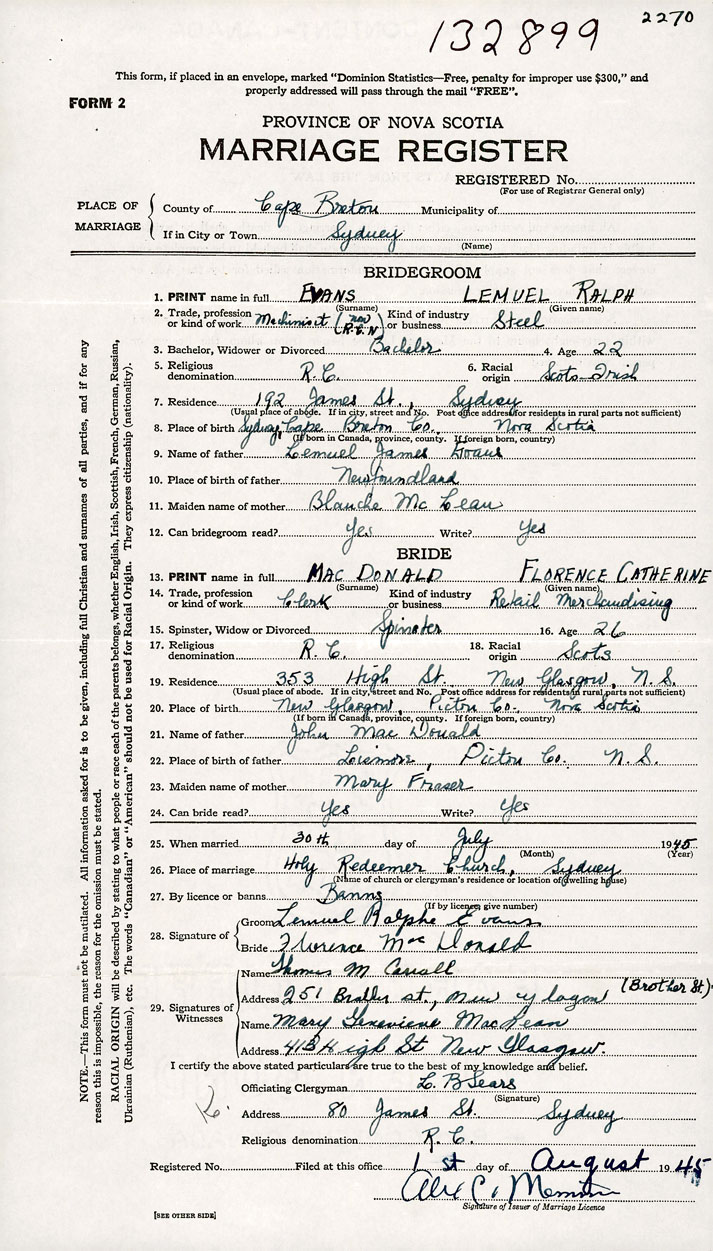 2270
132899
This form, if placed in an envelope, marked "Dominion Statistics—Free, penalty for improper use $300," and
properly addressed will pass through the mail "FREE".
FORM 2
PROVINCE OF NOVA SCOTIA
MARRIAGE REGISTER
REGISTERED No.
(For use of Registrar General only)
PLACE OF MARRIAGE
County of Cape Breton Municipality of
If in City or Town Sydney
(Name)
BRIDEGROOM
1. PRINT name in full EVANS LEMUEL RALPH
(Surname) (Given name)
2. Trade, profession or kind of work Machinist (now R.C.N) Kind of industry or business Steel
3. Bachelor, Widower or Divorced Bachelor 4. Age 22
5. Religious denomination R.C. 6. Racial origin Scots-Irish
7. Residence 192 James St., Sydney
(Usual place of abode. If in city, street and No. Post office address for residents in rural parts not sufficient)
8. Place of birth Sydney, Cape Breton Co. Nova Scotia
(If born in Canada, province, county. If foreign born, country)
9. Name of father Lemuel James Evans
10. Place of birth of father Newfoundland
11. Maiden name of mother Blanche Mc Lean
12. Can bridegroom read? Yes Write? Yes
BRIDE
13. PRINT name in full MAC DONALD FLORENCE CATHERINE
(Surname) (Given name)
14. Trade, profession or kind of work Clerk Kind of industry or business Retail Merchandising
15. Spinster, Widow or Divorced Spinster 16. Age 26
17. Religious denomination R.C. 18. Racial origin Scots
19. Residence 353 High St. New Glasgow, N.S.
(Usual place of abode. If in city, street and No. Post office address for residents in rural parts not sufficient)
20. Place of birth New Glasgow, Picton Co. Nova Scotia
(If born in Canada, province, county. If foreign born, country)
21. Name of father John Mac Donald
22. Place of birth of father Lismore, Picton Co. N.S.
23. Maiden name of mother Mary Fraser
24. Can bride read? Yes Write? Yes
25. When married 30th day of July 1945
(Month) (Year)
26. Place of marriage Holy Redeemer Church, Sydney
(Name of church or clergyman's residence or location of dwelling house)
27. By licence or banns Banns
(If by licence, give number)
28. Signature of
Groom Lemuel Ralphe Evans
Bride Florence Mac Donald
29. Signatures of Witnesses
Name Thomas M Carroll
Address 251 Brother st., (Brother St)
Name Mary Genevieve MacLean
Address 413 High St New Glasgow.
I certify the above stated particulars are true to the best of my knowledge and belief.
Officiating Clergyman L. B Sears
(Signature)
Address 80 James St. Sydney
Religious denomination R.C.
Registered No. Filed at this office 1st day of August 1945
Signature of Issuer of Marriage Licence
[SEE OTHER SIDE]
NOTE.—This form must not be mutilated. All information asked for is to be given, including full Christian and surnames of all parties, and if for any
reason this is impossible, the reason for the omission must be stated.
RACIAL ORIGIN will be described by stating to what people or race each of the parents belongs, whether English, Irish, Scottish, French, German, Russian,
Ukrainian (Ruthenian), etc. The words "Canadian" or "American" should not be used for Racial Origin. They express citizenship (nationality).